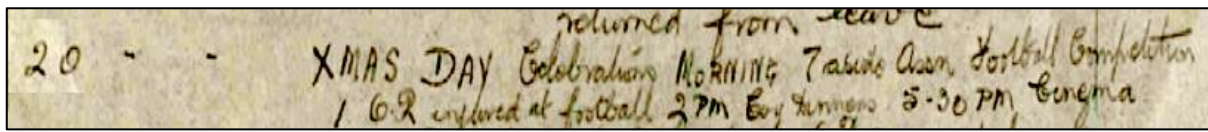 returned from leave
20 - - XMAS DAY Celebrations MORNING 7 aside Assn Football Competition
1 O.R injured at football 2 PM Coy Dinners 5-30 PM Cinema